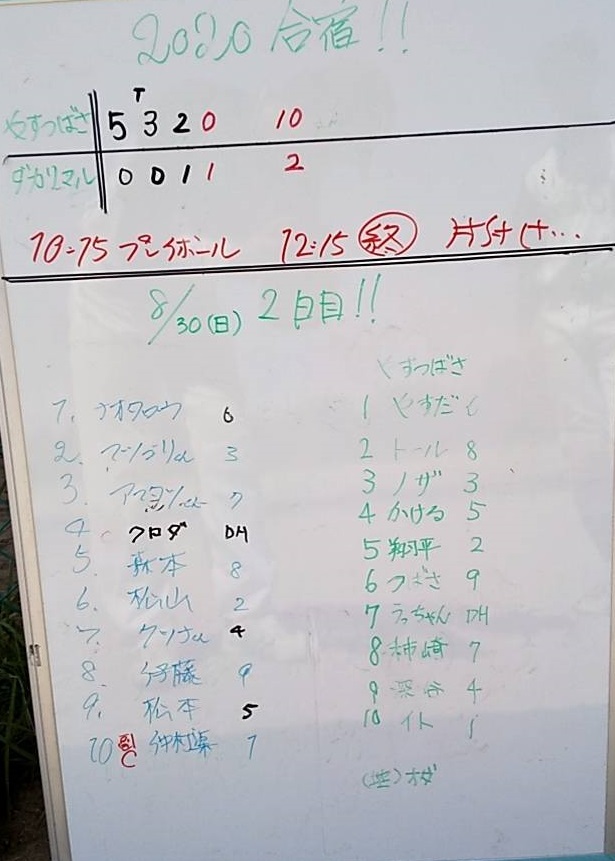 2020 合宿!!
T
やすつばさ 5 3 2 0 10
ダカリマル 0 0 1 1 2
10:15 プレイボール 12:15 終 片付け...
8/30(日) 2日目!!
やすつばさ
1. ナオタロウ 6
1 やすだ 6
2. 3
2 トール 8
3. 7
3 ノザ 3
4 クロダ DH
4 かける 5
5. 森本 8
5 翔平 2
6. 松山 2
6 つばさ 9
7. ケンさん 4
7 うっちゃん DH
8. 伊藤 9
8 柿崎 7
9. 松本 5
9 4
10 副C 仲村渠 1
10 イト 1
オダ